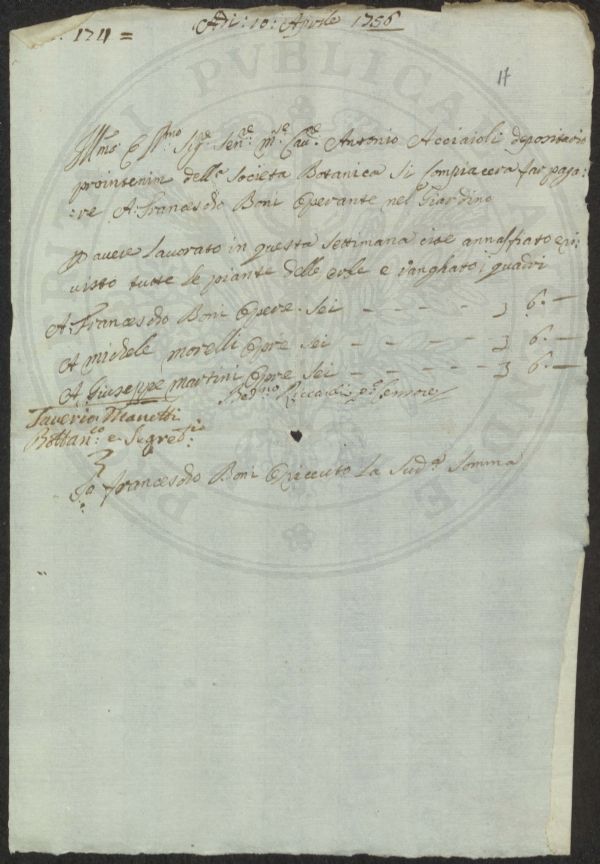 174 =
Adi: 10: Aprile 1756
Ill.mo e Sig.e Sen.re Cau.re Antonio Acciaioli depositario
della Societa Botanica Si Compiacera far paga-
:re A: Francescho Boni Operante nel Giardino
P auere Lauorato in questa Settimana cioe annaffiato e ri:
uisto tutte le piante delle erbe e uanghato i quadri
A: Francescho Boni Opere Sei - - - - 3 6: -
A michele morelli Opre Sei - - - - 3 6: -
A Giuseppe Martini Opre Sei - - - - 3 6: -
Riccardi
Sauerio Manetti
Bottan.co e Segret.rio
Io francescho Boni O riceuto La Sud.a Somma
PVBLICA